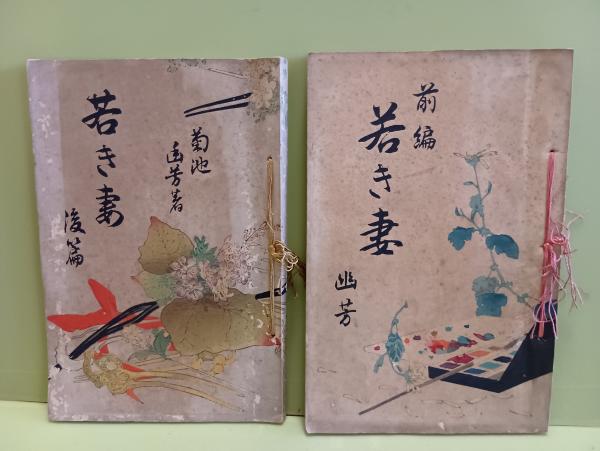 若き妻
菊池
幽芳著
後篇
前編
若き妻
幽芳